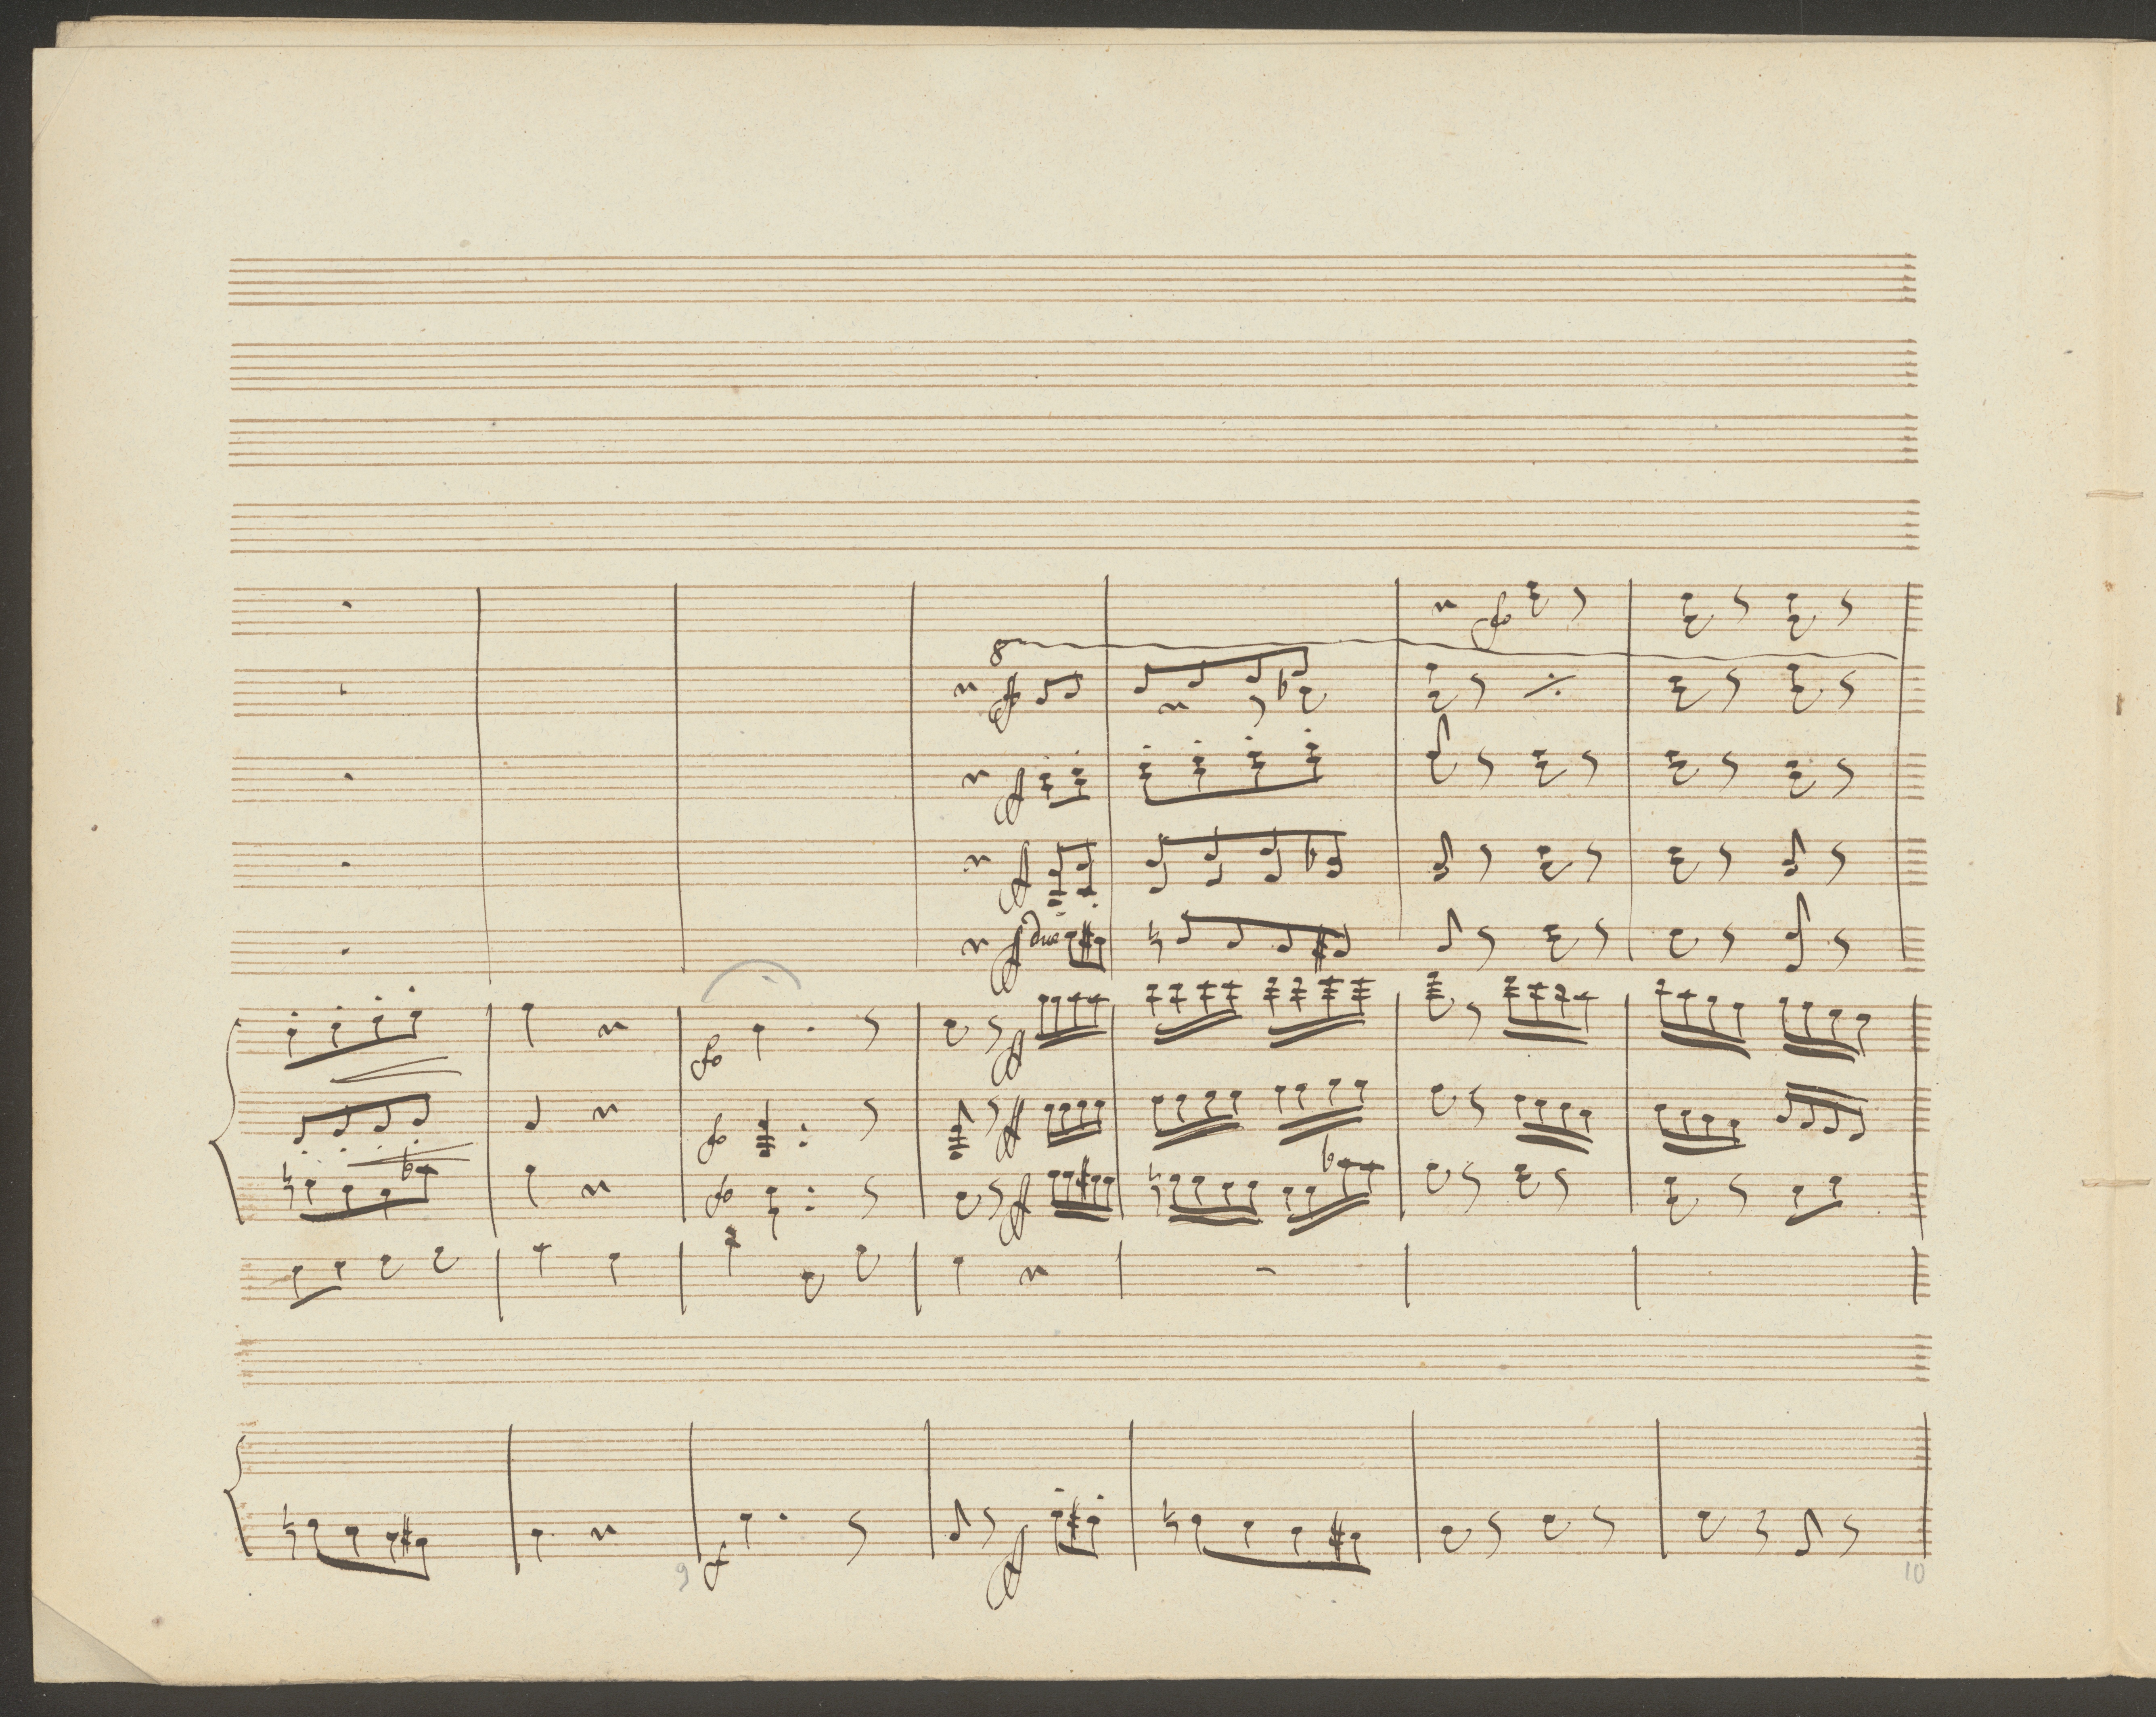 fo
8
ff
ff
ff
ff due
fo ff
fo ff
fo ff
f ff
9 10